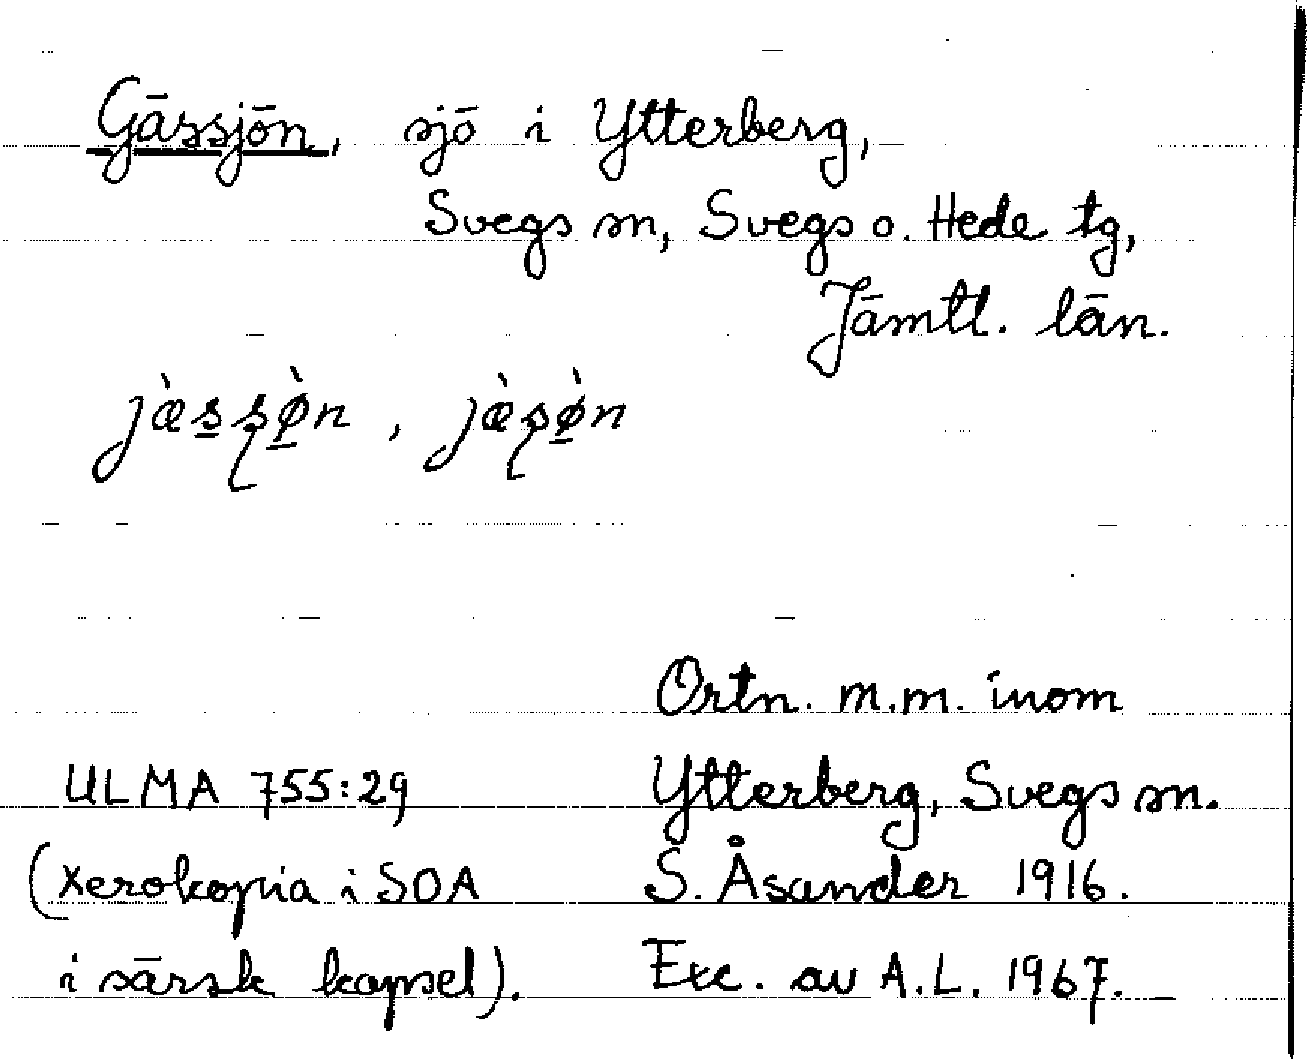 Gässjön, sjö i Ytterberg,
Svegs sn, Svegs o. Hede tg,
Jämtl. län.
jæ̀s̲ʂø̲̀n, jæ̀ʂø̲̀n
Ortn. m.m. inom
ULMA 755:29 Ytterberg, Svegs sn.
(Xerokopia i SOA S. Åsander 1916.
i särsk kapsel). Exc. av A.L. 1967.